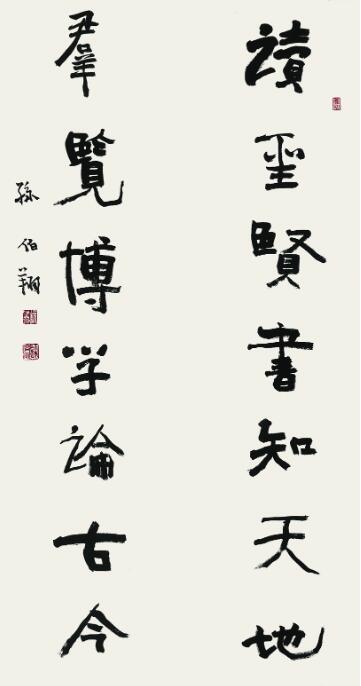 讀聖賢書知天地
羣覽博学論古今
孫伯翔